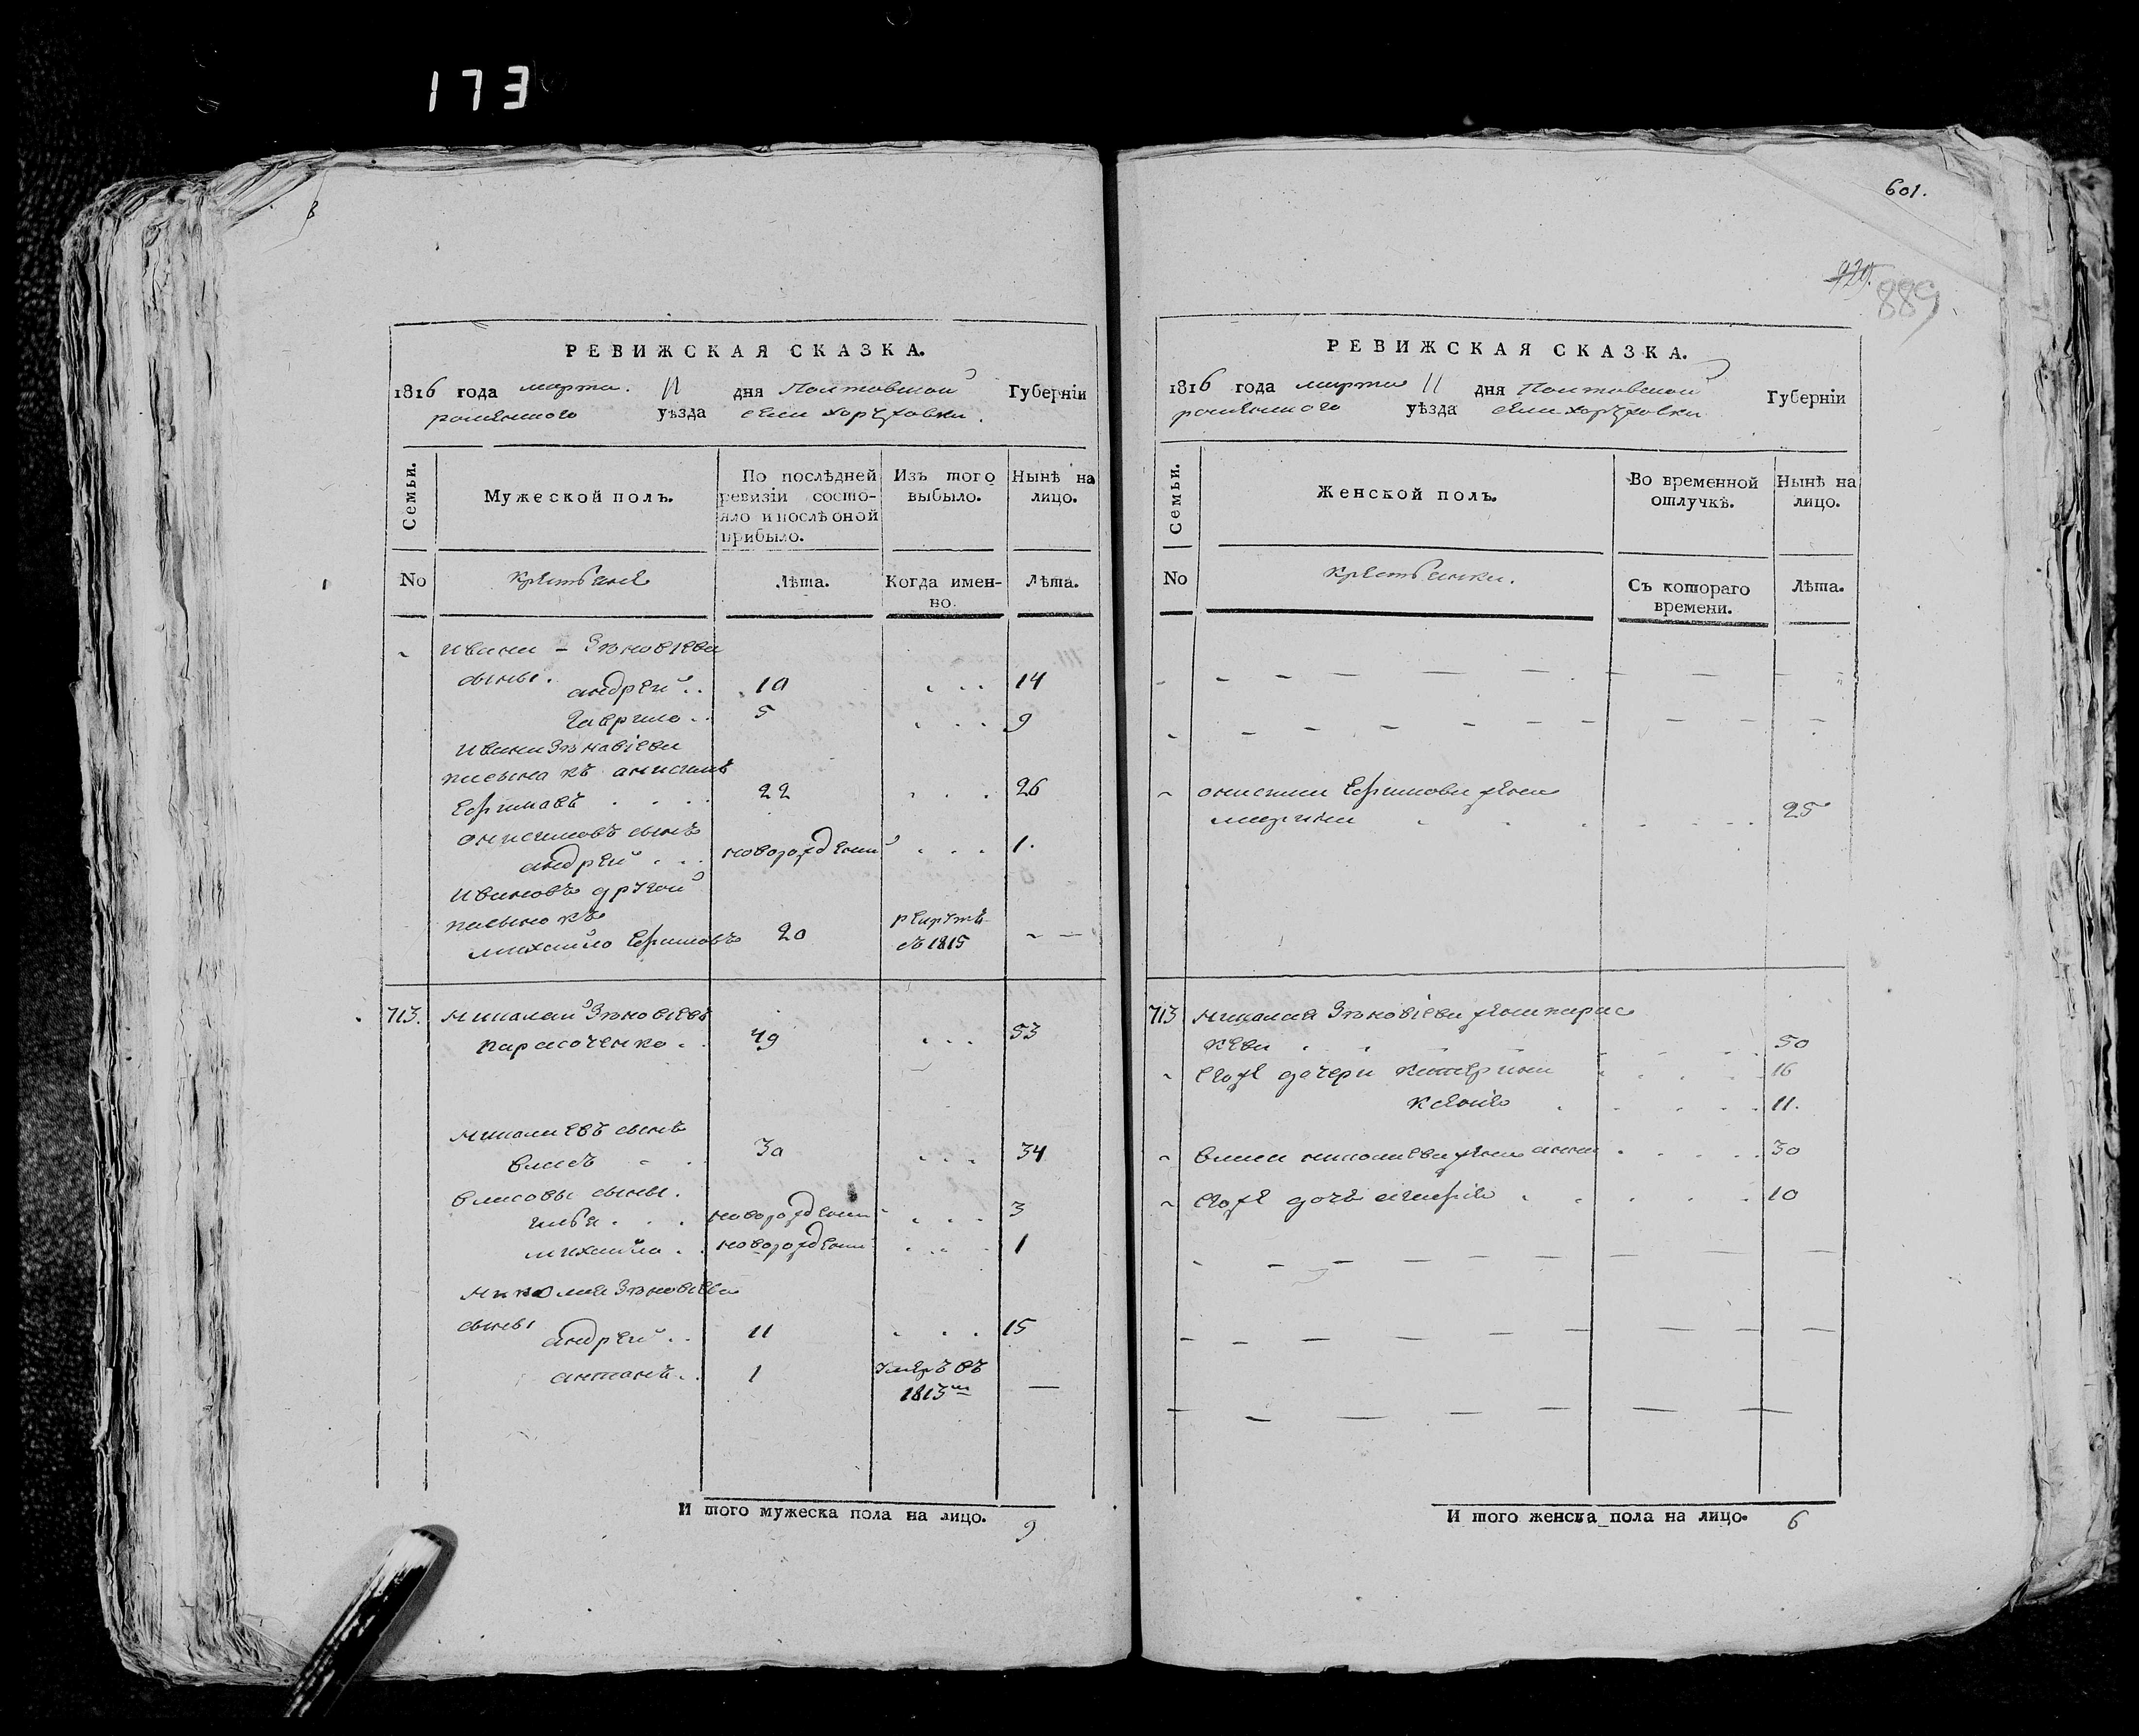 173
601.
929.
889
РЕВИЖСКАЯ СКАЗКА.
1816 года марта. 11 дня Полтавской Губерніи
роменского уѣзда села хоружовки.
Семьи.
Мужеской полъ.
По послѣдней ревизіи состояло и послѣ оной прибыло.
Изъ того выбыло.
Нынѣ на лицо.
No
крестьяне
Лѣта.
Когда именно.
Лѣта.
Ивана - Зѣновіева
сыны.
андрей .. 10 ... 14
гаврило .. 5 ... 9
Ивана Зѣновіева
пасынокъ анисимъ
Ефимовъ .... 22 ... 26
онисимовъ сынъ
андрей ... новорождений ... 1.
Ивановъ другой
пасынокъ
михайло Ефимовъ 20
рекрутъ
съ 1815
713. Николай Зѣновіевъ
парасоченко .. 49 ... 53
Николаевъ сынъ
власъ .. 30 ... 34
власовы сыны.
илья ... новорождений ... 3
михайло .. новорождений ... 1
Николая Зѣновіева
сыны
андрей .. 11 ... 15
антонъ .. 1
умеръ въ
1813м —
И того мужеска пола на лицо. 9
РЕВИЖСКАЯ СКАЗКА.
1816 года марта 11 дня Полтавской Губерніи
роменского уѣзда села хоружовки
Семьи.
Женской полъ.
Во временной отлучкѣ.
Нынѣ на лицо.
No
крестьянки.
Съ котораго времени.
Лѣта.
онисима Ефимова жена
марина 25
713 Николая Зѣновіева жена парас
кева 50
Егожъ дочери катерина 16
ксенія 11.
власа николаева жена анна 30
Егожъ дочь 10
И того женска пола на лицо. 6